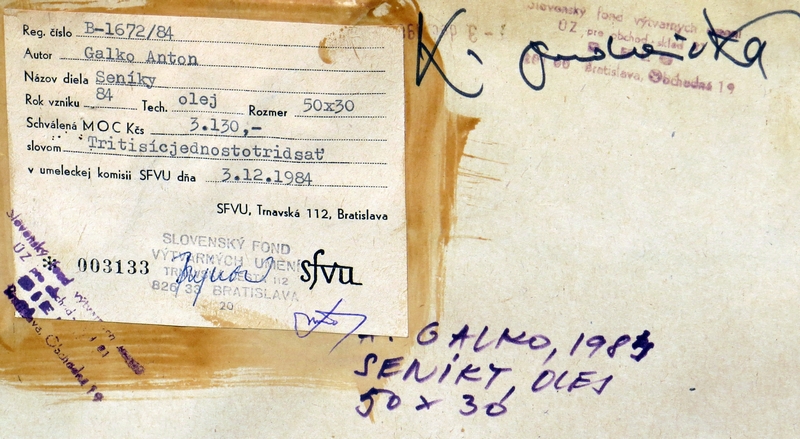 Reg. číslo B-1672/84
Autor Galko Anton
Názov diela Seníky
Rok vzniku 84 Tech. olej Rozmer 50x30
Schválená MOC Kčs 3.130,-
slovom Tritisícjednostotridsať
v umeleckej komisii SFVU dňa 3.12.1984
SFVU, Trnavská 112, Bratislava
003133
SLOVENSKÝ FOND
VÝTVARNÝCH UMENÍ
112
826 33 BRATISLAVA
20
sfvu
Slovenský fond výtvarných
ÚZ pre obchod
Obchodná 19
K.
Slovenský fond výtvarných umení
ÚZ pre obchod
Bratislava, Obchodná 19
A. GALKO, 1984
SENÍKY, OLEJ
50 x 30